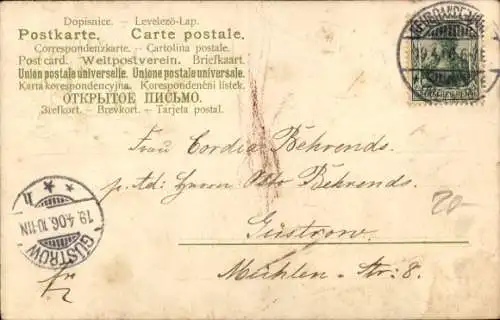 Dopisnice. — Levelező-Lap.
Postkarte. Carte postale.
Correspondenzkarte. — Cartolina postale.
Post card. — Weltpostverein. — Briefkaart.
Union postale universelle. Unione postale universale.
Karta korespondencyjna. — Korespondenční listek.
ОТКРЫТОЕ ПИСЬМО.
Brefkort. — Brevkort. — Tarjeta postal.
Frau Cordia Behrends.
p. Ad: Herrn Otto Behrends.
20-
Güstrow.
Mühlen-Str: 8.
GÜSTROW
19.4.06.10-11N
h